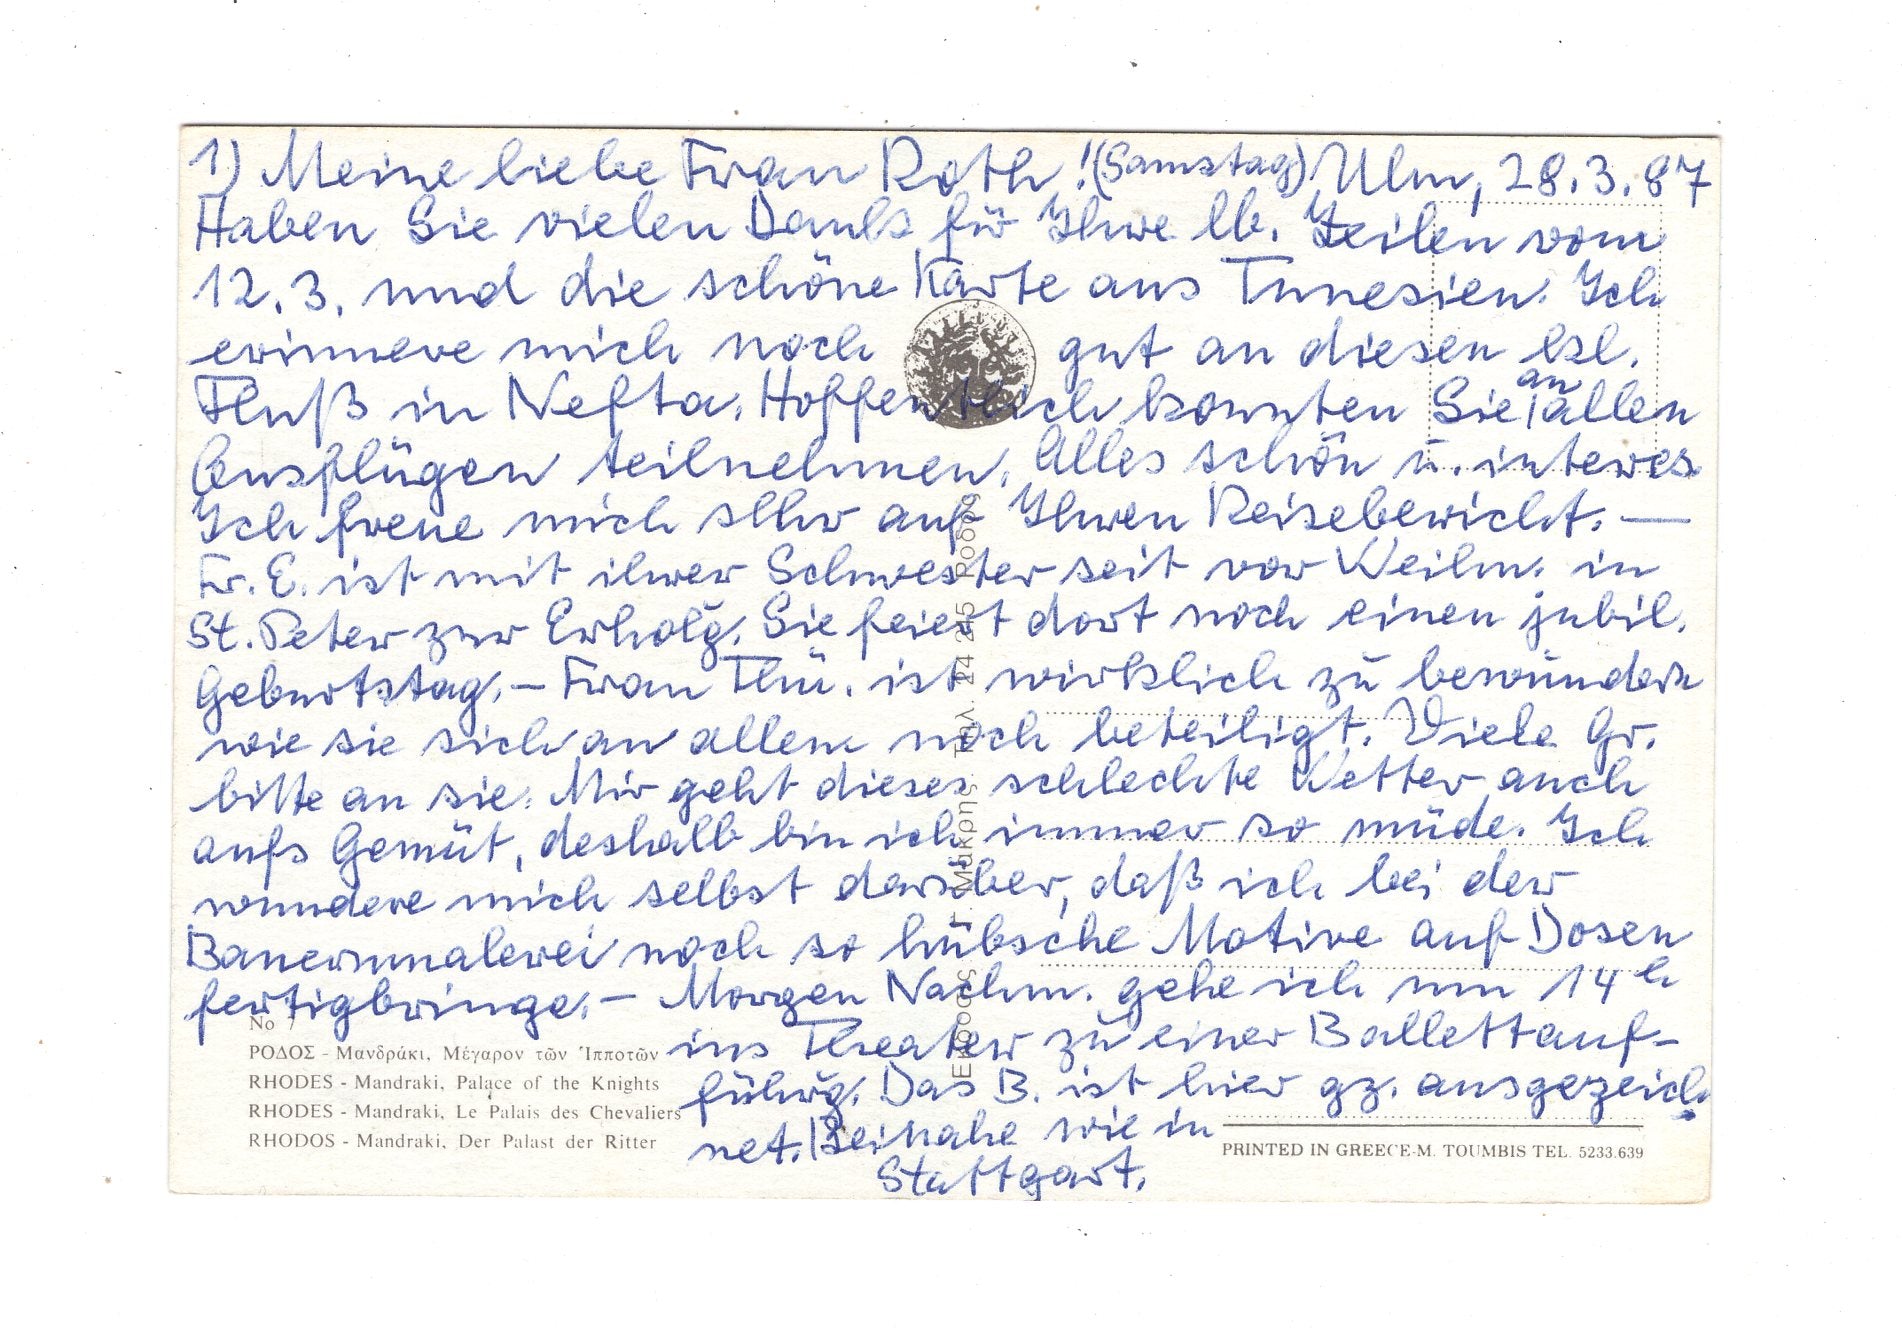 1) Meine liebe Frau Roth! (Samstag) Ulm, 28.3.87
Haben Sie vielen Dank für Ihre lb. Zeilen vom
12.3. und die schöne Karte aus Tunesien. Ich
erinnere mich noch gut an diesen kl.
Fluß in Nefta. Hoffentlich konnten Sie an allen
Ausflügen teilnehmen. Alles schön u. interes.
Ich freue mich sehr auf Ihren Reisebericht. —
Fr. E. ist mit ihrer Schwester seit vor Weihn. in
St. Peter zur Erholg. Sie feiert dort noch einen jubil.
Geburtstag. – Frau Thü. ist wirklich zu bewundern
wie sie sich an allem noch beteiligt. Viele Gr.
bitte an sie. Mir geht dieses schlechte Wetter auch
aufs Gemüt, deshalb bin ich immer so müde. Ich
wundere mich selbst darüber, daß ich bei der
Bauernmalerei noch so hübsche Motive auf Dosen
fertigbringe. – Morgen Nachm. gehe ich um 14 h
ins Theater zu einer Ballettauf-
führg. Das B. ist hier gz. ausgezeich-
net. Beinahe wie in
Stuttgart.
No 7
ΡΟΔΟΣ - Μανδράκι, Μέγαρον τῶν Ἱπποτῶν
RHODES - Mandraki, Palace of the Knights
RHODES - Mandraki, Le Palais des Chevaliers
RHODOS - Mandraki, Der Palast der Ritter
PRINTED IN GREECE-M. TOUMBIS TEL. 5233.639
Γ. Μακρης Τηλ. 24 245 Ροδος